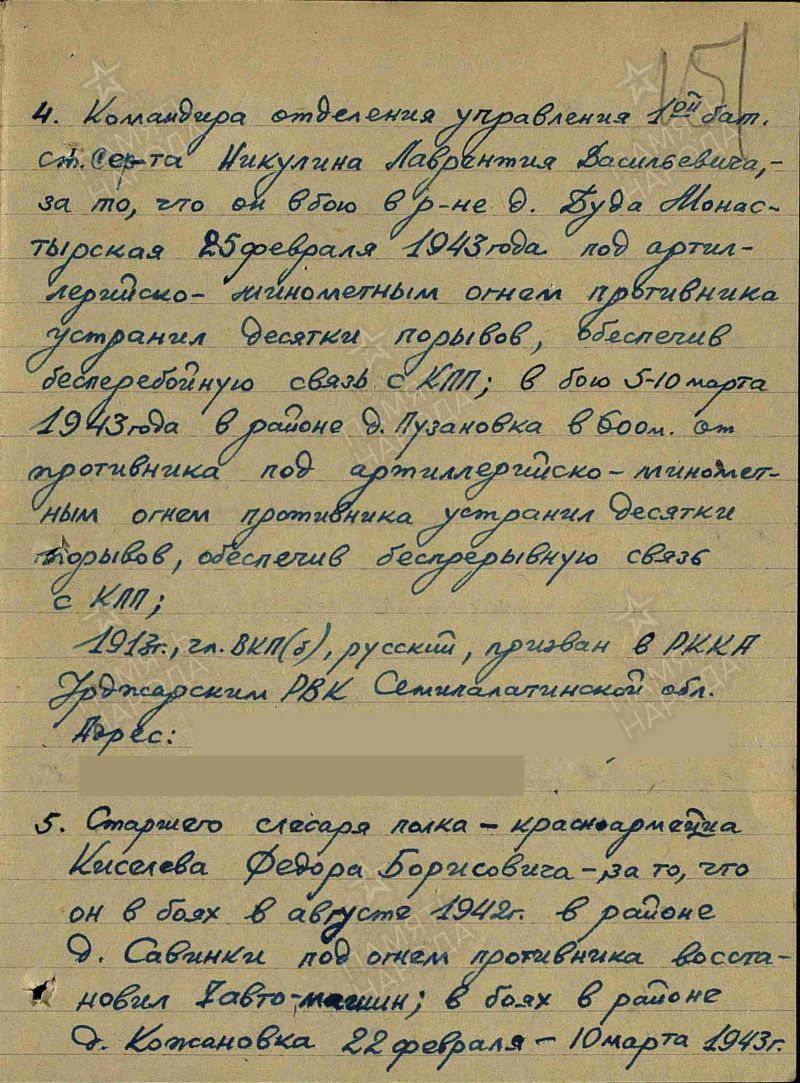 151
4. Командира отделения управления 1ой бат.
ст. сер-та Никулина Лаврентия Васильевича,-
за то, что он в бою в р-не д. Буда Монас-
тырская 25 февраля 1943 года под артил-
лерийско- минометным огнем противника
устранил десятки порывов, обеспечив
бесперебойную связь с КПП; в бою 5-10 марта
1943 года в районе д. Пузановка в 600 м. от
противника под артиллерийско-миномет-
ным огнем противника устранил десятки
порывов, обеспечив беспрерывную связь
с КПП;
1913г., чл. ВКП(б), русский, призван в РККА
Урджарским РВК Семипалатинской обл.
Адрес:
5. Старшего слесаря полка - красноармейца
Киселева Федора Борисовича-, за то, что
он в боях в августе 1942г. в районе
д. Савинки под огнем противника восста-
новил 7 авто-машин; в боях в районе
д. Кожановка 22 февраля - 10 марта 1943г.
ПАМЯТЬ НАРОДА